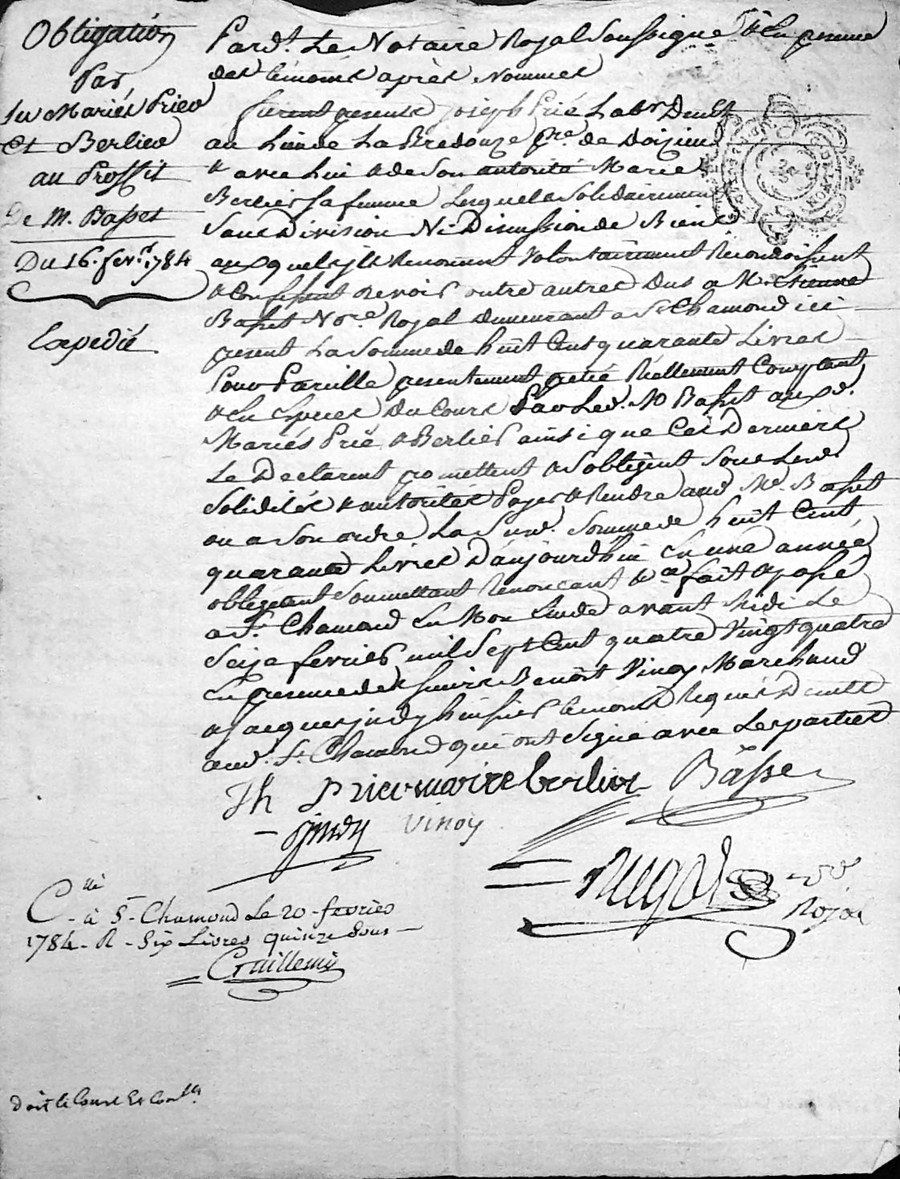 Obligation
Par
les Mariés Prier
Et Berlier
au Proffit
De M. Basset
Du 16. fevr. 1784
Expedié
Pardt. Le Notaire Royal Soussigné & En presence
des temoins après Nommes
furent presents joseph Prié Labr. Demt.
au Lieu de La Bredouze Pse. de Doizieu
& avec Lui & de Son autorité Marie
Berlier Sa femme Lesquels Solidairement
Sans Division Ni Discussion de Biens
auxquels jls Renoncent Volontairement Reconoissent
& Confessent devoir outre autres dus a Me. Etienne
Basset Nore. Royal demeurant a St Chamond ici
present La Somme de huit Cent quarante Livres
Pour Pareille presentement Reellement Comptant
& En Especes Du Cours Par Led. Me Basset auxd.
Mariés Prié & Berlier ainsi que Ces Derniers
Le Declarent promettent & s'obligent Sous Leurs
Solidités & autorités Payer & Rendre aud Me. Basset
ou a Son ordre La Susd. Somme de huit Cent
quarante Livres D'aujourdhui En une année
obligeant Soumettant Renoncant &a fait & passé
a St. Chamond En Mon Etude avant Midi Le
Seize fevrier mil Sept Cent quatre Vingt quatre
En presence de Benoît Vinoy Marchand
& Jacques judy huissier temoins Requis Demts
aud. St. Chamond qui ont Signé avec Les parties
Jh Prier marie berlier Basset
judy Vinoy
Royal
Clle à St. Chamond Le 20 fevrier
1784 R Six Livres quinze Sous
doit le Court Et Conlle